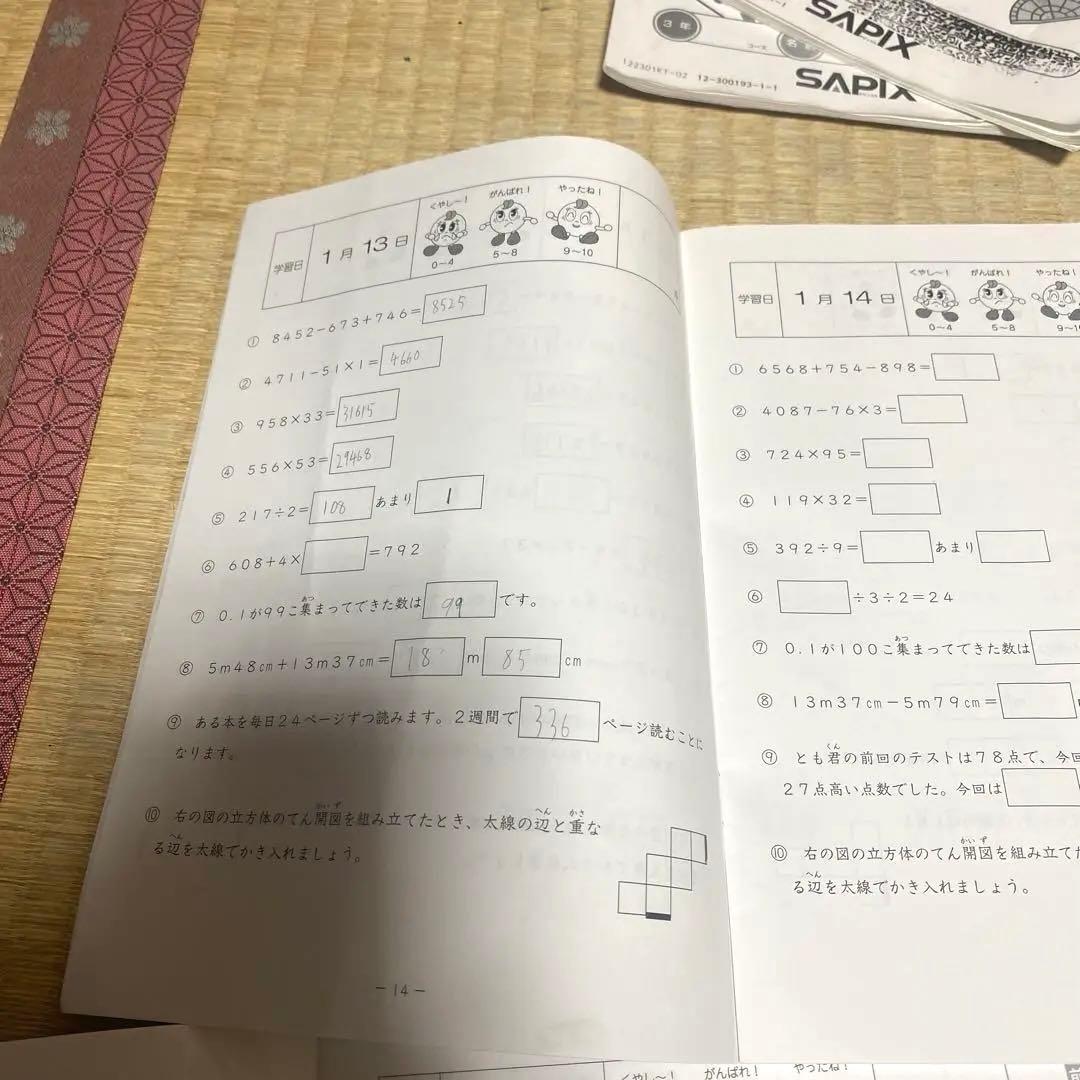 3年
コース
122301KT-02 12-300193-1-1
SAPIX
SAPIX
学習日 1月13日
くやし〜! がんばれ! やったね!
0〜4 5〜8 9〜10
① 8452−673+746=8525
② 4711−51×1=4660
③ 958×33=31615
④ 556×53=29468
⑤ 217÷2=108 あまり 1
⑥ 608+4× =792
⑦ 0.1が99こ集まってできた数は 99 です。
⑧ 5m48cm+13m37cm=18 m 85 cm
⑨ ある本を毎日24ページずつ読みます。2週間で 336 ページ読むことに
なります。
⑩ 右の図の立方体のてん開図を組み立てたとき、太線の辺と重な
る辺を太線でかき入れましょう。
− 14 −
学習日 1月14日
くやし〜! がんばれ! やったね!
0〜4 5〜8
① 6568+754−898=
② 4087−76×3=
③ 724×95=
④ 119×32=
⑤ 392÷9= あまり
⑥ ÷3÷2=24
⑦ 0.1が100こ集まってできた数は
⑧ 13m37cm−5m79cm=
⑨ とも君の前回のテストは78点で、今回
27点高い点数でした。今回は
⑩ 右の図の立方体のてん開図を組み立て
る辺を太線でかき入れましょう。
くやし〜! がんばれ! やったね!